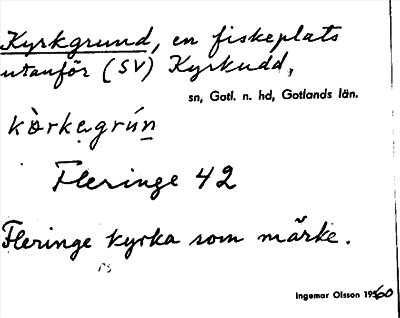 Kyrkgrund, en fiskeplats
utanför (SV) Kyrkudd,
sn, Gotl. n. hd, Gotlands län.
kò̀rkagrún
Fleringe 42
Fleringe kyrka som märke.
Ingemar Olsson 1960